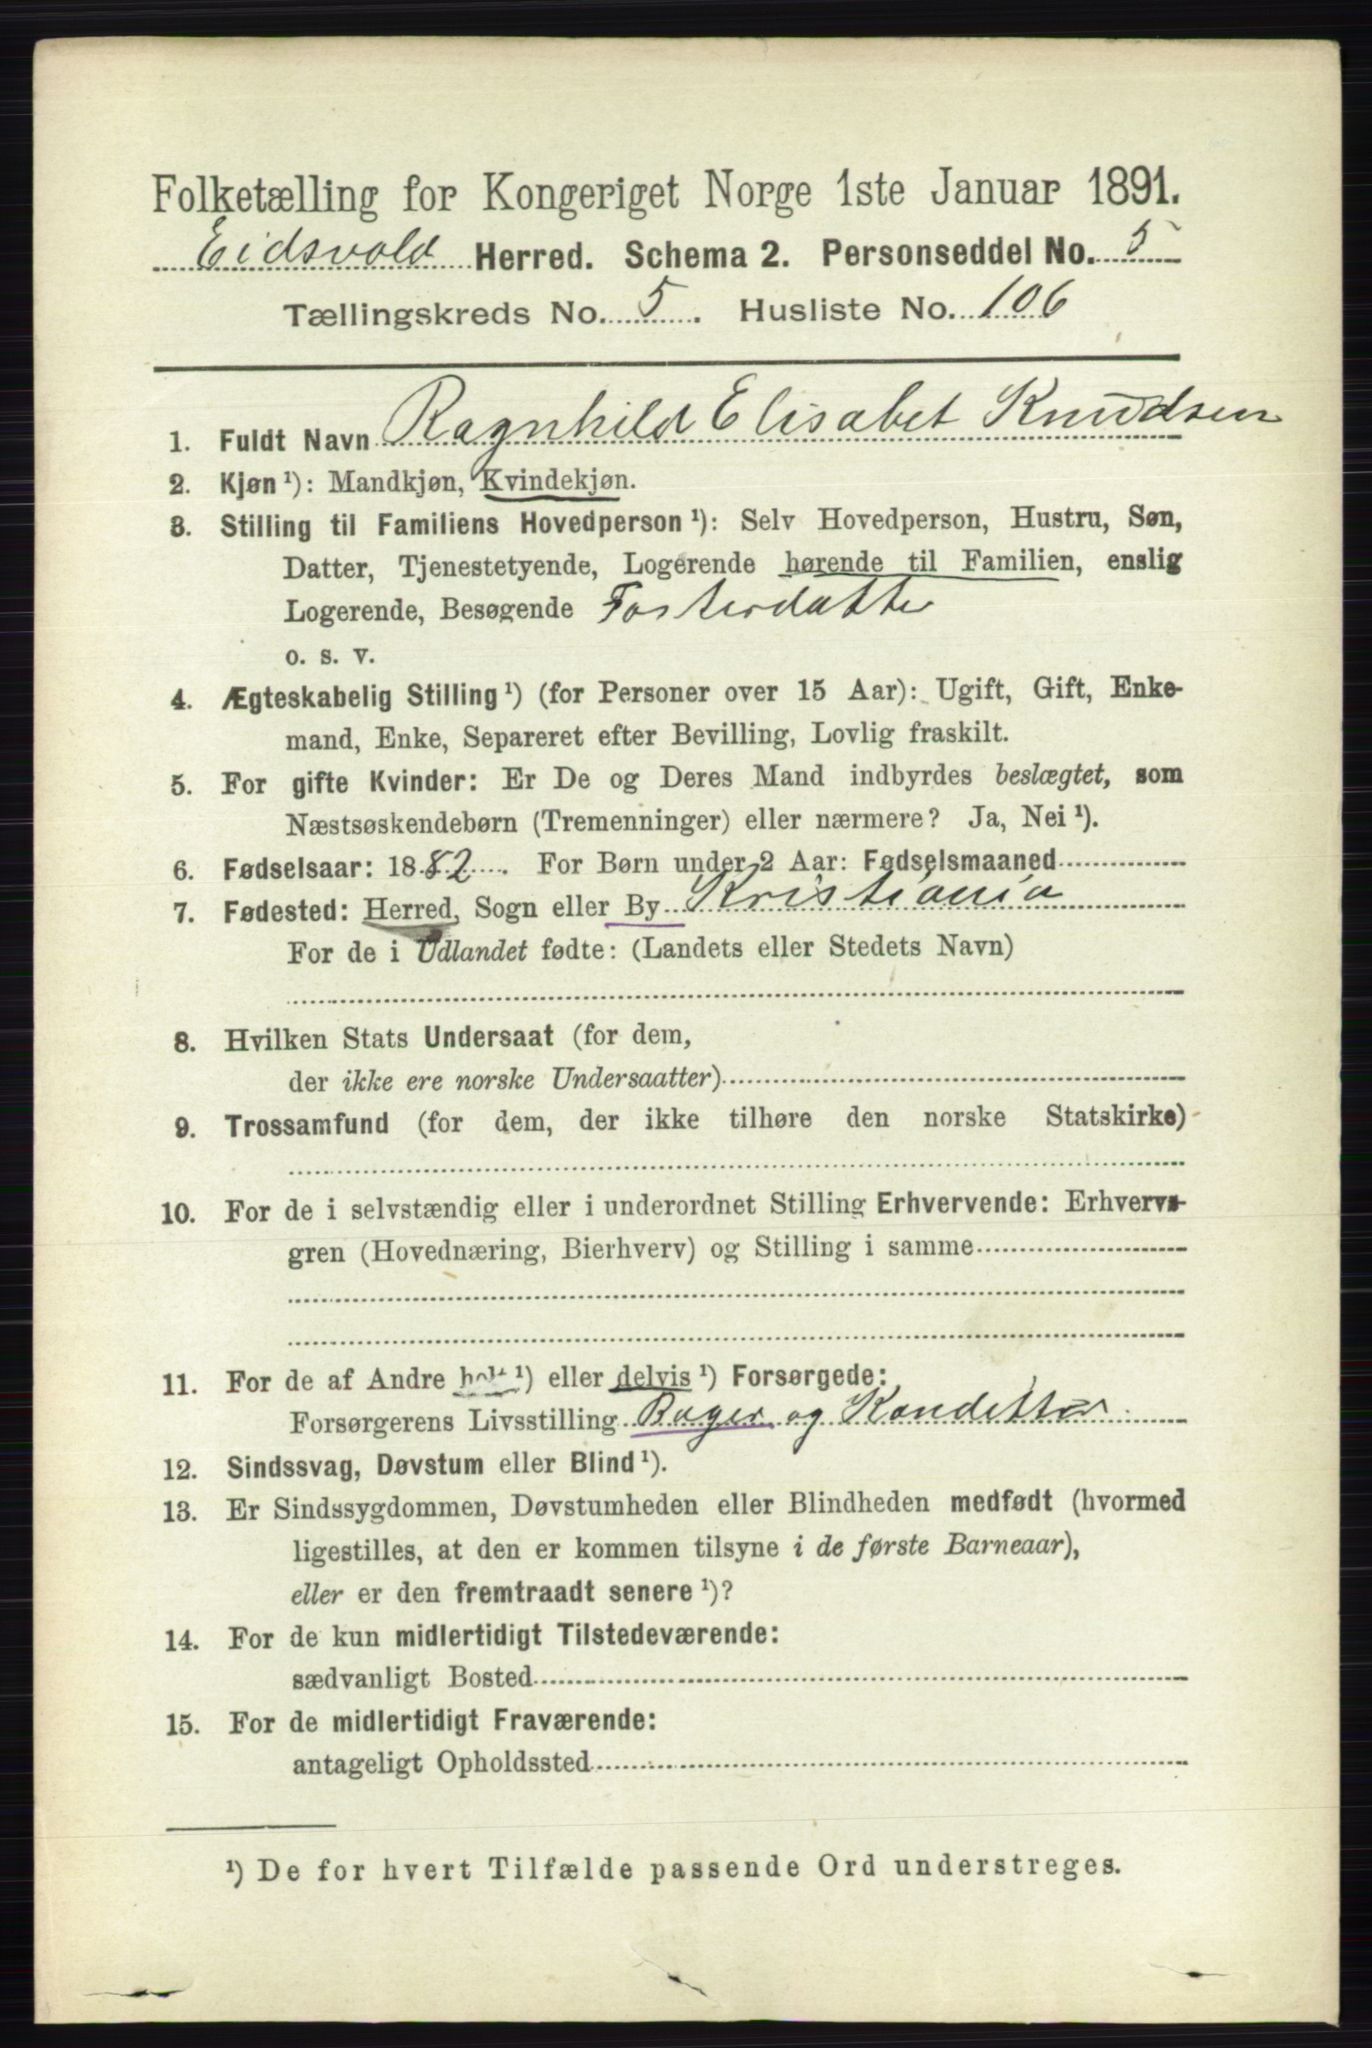 Folketælling for Kongeriget Norge 1ste Januar 1891.
Eidsvold Herred. Schema 2. Personseddel No. 5
Tællingskreds No. 5. Husliste No. 106
1. Fuldt Navn Ragnhild Elisabet Knudsen
2. Kjøn ¹): Mandkjøn, Kvindekjøn.
3. Stilling til Familiens Hovedperson ¹): Selv Hovedperson, Hustru, Søn,
Datter, Tjenestetyende, Logerende hørende til Familien, enslig
Logerende, Besøgende Fosterdatter
o. s. v.
4. Ægteskabelig Stilling ¹) (for Personer over 15 Aar): Ugift, Gift, Enke-
mand, Enke, Separeret efter Bevilling, Lovlig fraskilt.
5. For gifte Kvinder: Er De og Deres Mand indbyrdes beslægtet, som
Næstsøskendebørn (Tremenninger) eller nærmere? Ja, Nei ¹).
6. Fødselsaar: 1882. For Børn under 2 Aar: Fødselsmaaned
7. Fødested: Herred, Sogn eller By Kristiania
For de i Udlandet fødte: (Landets eller Stedets Navn)
8. Hvilken Stats Undersaat (for dem,
der ikke ere norske Undersaatter)
9. Trossamfund (for dem, der ikke tilhøre den norske Statskirke)
10. For de i selvstændig eller i underordnet Stilling Erhvervende: Erhvervs-
gren (Hovednæring, Bierhverv) og Stilling i samme
11. For de af Andre helt ¹) eller delvis ¹) Forsørgede:
Forsørgerens Livsstilling Bager og Konditter
12. Sindssvag, Døvstum eller Blind ¹).
13. Er Sindssygdommen, Døvstumheden eller Blindheden medfødt (hvormed
ligestilles, at den er kommen tilsyne i de første Barneaar),
eller er den fremtraadt senere ¹)?
14. For de kun midlertidigt Tilstedeværende:
sædvanligt Bosted
15. For de midlertidigt Fraværende:
antageligt Opholdssted
¹) De for hvert Tilfælde passende Ord understreges.